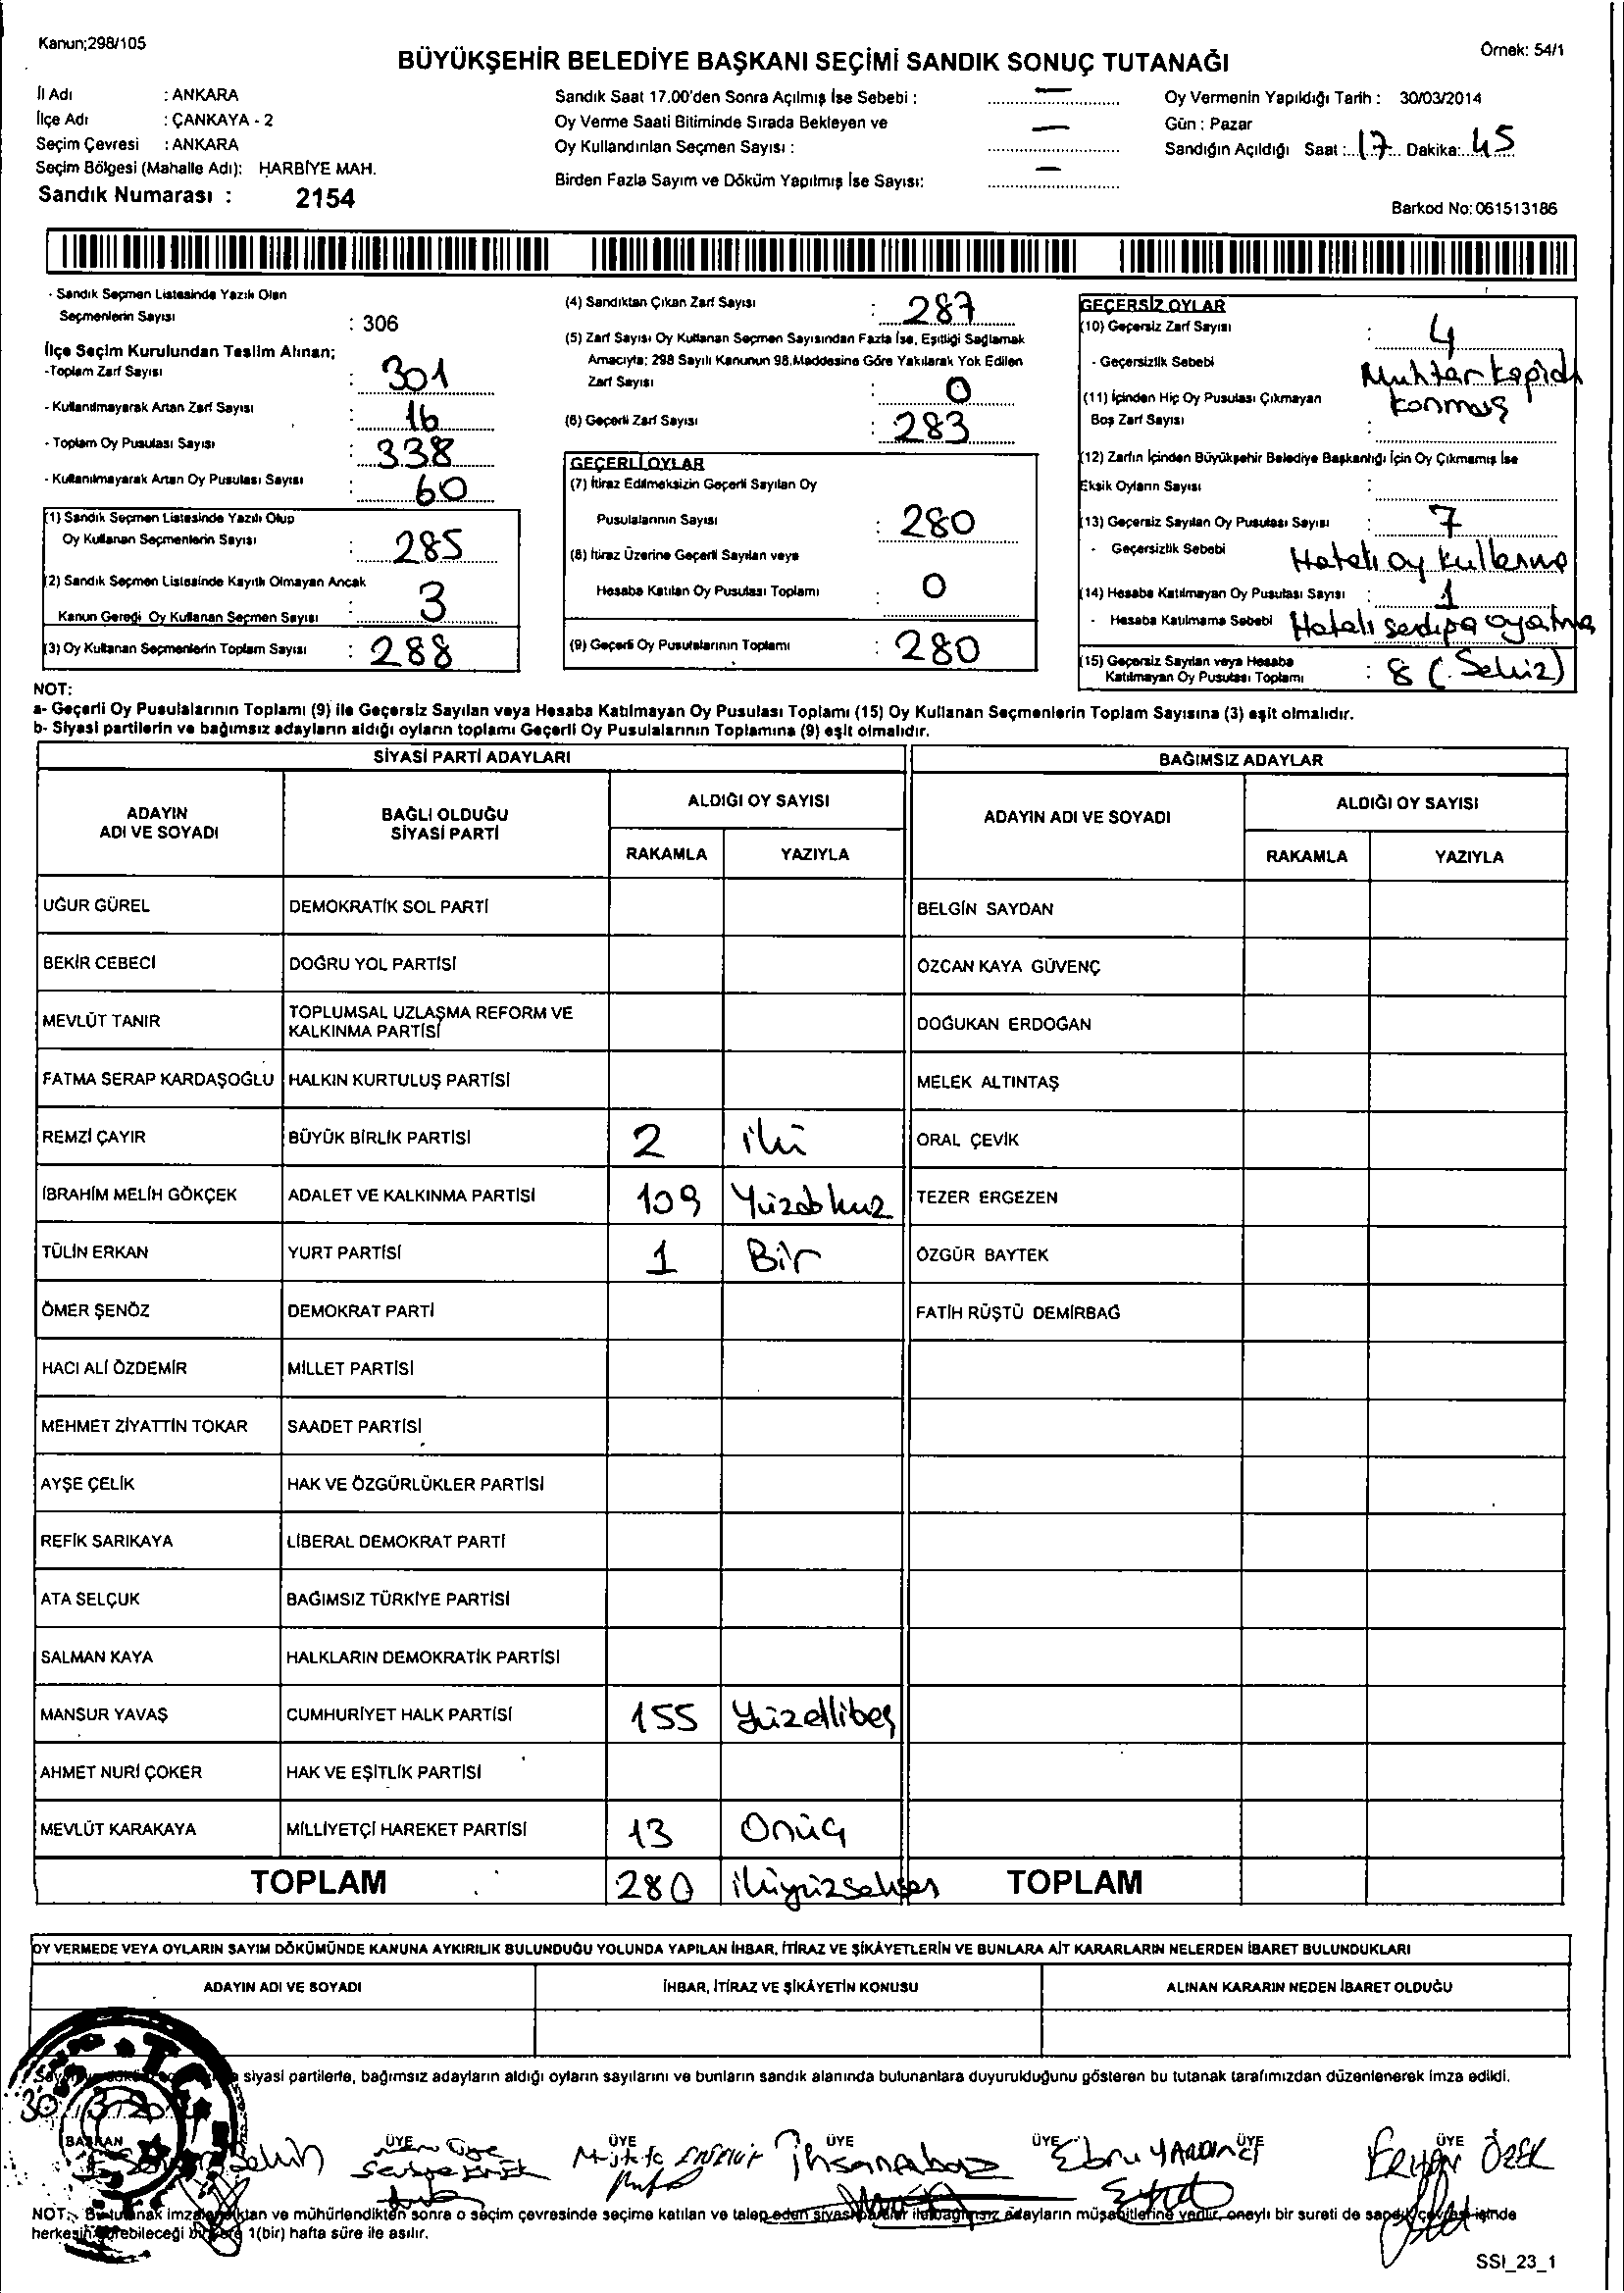 Kanun;298/105
Örnek: 54/1
BÜYÜKŞEHİR BELEDİYE BAŞKANI SEÇİMİ SANDIK SONUÇ TUTANAĞI
İl Adı : ANKARA
İlçe Adı : ÇANKAYA - 2
Seçim Çevresi : ANKARA
Seçim Bölgesi (Mahalle Adı): HARBİYE MAH.
Sandık Numarası : 2154
Sandık Saat 17.00'den Sonra Açılmış İse Sebebi : —
Oy Verme Saati Bitiminde Sırada Bekleyen ve
Oy Kullandırılan Seçmen Sayısı : —
Birden Fazla Sayım ve Döküm Yapılmış İse Sayısı: —
Oy Vermenin Yapıldığı Tarih : 30/03/2014
Gün : Pazar
Sandığın Açıldığı Saat : 17 Dakika: 45
Barkod No: 061513186
- Sandık Seçmen Listesinde Yazılı Olan
Seçmenlerin Sayısı : 306
İlçe Seçim Kurulundan Teslim Alınan;
-Toplam Zarf Sayısı : 301
- Kullanılmayarak Artan Zarf Sayısı : 16
- Toplam Oy Pusulası Sayısı : 338
- Kullanılmayarak Artan Oy Pusulası Sayısı : 60
(1) Sandık Seçmen Listesinde Yazılı Olup
Oy Kullanan Seçmenlerin Sayısı : 285
(2) Sandık Seçmen Listesinde Kayıtlı Olmayan Ancak
Kanun Gereği Oy Kullanan Seçmen Sayısı : 3
(3) Oy Kullanan Seçmenlerin Toplam Sayısı : 288
(4) Sandıktan Çıkan Zarf Sayısı : 287
(5) Zarf Sayısı Oy Kullanan Seçmen Sayısından Fazla İse, Eşitliği Sağlamak
Amacıyla; 298 Sayılı Kanunun 98.Maddesine Göre Yakılarak Yok Edilen
Zarf Sayısı : 0
(6) Geçerli Zarf Sayısı : 283
GEÇERLİ OYLAR
(7) İtiraz Edilmeksizin Geçerli Sayılan Oy
Pusulalarının Sayısı : 280
(8) İtiraz Üzerine Geçerli Sayılan veya
Hesaba Katılan Oy Pusulası Toplamı : 0
(9) Geçerli Oy Pusulalarının Toplamı : 280
GEÇERSİZ OYLAR
(10) Geçersiz Zarf Sayısı : 4
- Geçersizlik Sebebi Muhtar
konmuş
(11) İçinden Hiç Oy Pusulası Çıkmayan
Boş Zarf Sayısı :
(12) Zarfın İçinden Büyükşehir Belediye Başkanlığı İçin Oy Çıkmamış İse
Eksik Oyların Sayısı :
(13) Geçersiz Sayılan Oy Pusulası Sayısı : 7
- Geçersizlik Sebebi Hatalı oy kullanma
(14) Hesaba Katılmayan Oy Pusulası Sayısı : 1
- Hesaba Katılmama Sebebi Hatalı
(15) Geçersiz Sayılan veya Hesaba
Katılmayan Oy Pusulası Toplamı : 8 (Sekiz)
NOT:
a- Geçerli Oy Pusulalarının Toplamı (9) ile Geçersiz Sayılan veya Hesaba Katılmayan Oy Pusulası Toplamı (15) Oy Kullanan Seçmenlerin Toplam Sayısına (3) eşit olmalıdır.
b- Siyasi partilerin ve bağımsız adayların aldığı oyların toplamı Geçerli Oy Pusulalarının Toplamına (9) eşit olmalıdır.
SİYASİ PARTİ ADAYLARI
BAĞIMSIZ ADAYLAR
ADAYIN ADI VE SOYADI
BAĞLI OLDUĞU SİYASİ PARTİ
ALDIĞI OY SAYISI
RAKAMLA YAZIYLA
ADAYIN ADI VE SOYADI
ALDIĞI OY SAYISI
RAKAMLA YAZIYLA
UĞUR GÜREL DEMOKRATİK SOL PARTİ BELGİN SAYDAN
BEKİR CEBECİ DOĞRU YOL PARTİSİ ÖZCAN KAYA GÜVENÇ
MEVLÜT TANIR TOPLUMSAL UZLAŞMA REFORM VE KALKINMA PARTİSİ DOĞUKAN ERDOĞAN
FATMA SERAP KARDAŞOĞLU HALKIN KURTULUŞ PARTİSİ MELEK ALTINTAŞ
REMZİ ÇAYIR BÜYÜK BİRLİK PARTİSİ 2 iki ORAL ÇEVİK
İBRAHİM MELİH GÖKÇEK ADALET VE KALKINMA PARTİSİ 109 Yüzdokuz TEZER ERGEZEN
TÜLİN ERKAN YURT PARTİSİ 1 Bir ÖZGÜR BAYTEK
ÖMER ŞENÖZ DEMOKRAT PARTİ FATİH RÜŞTÜ DEMİRBAĞ
HACI ALİ ÖZDEMİR MİLLET PARTİSİ
MEHMET ZİYATTİN TOKAR SAADET PARTİSİ
AYŞE ÇELİK HAK VE ÖZGÜRLÜKLER PARTİSİ
REFİK SARIKAYA LİBERAL DEMOKRAT PARTİ
ATA SELÇUK BAĞIMSIZ TÜRKİYE PARTİSİ
SALMAN KAYA HALKLARIN DEMOKRATİK PARTİSİ
MANSUR YAVAŞ CUMHURİYET HALK PARTİSİ 155 Yüzellibeş
AHMET NURİ ÇOKER HAK VE EŞİTLİK PARTİSİ
MEVLÜT KARAKAYA MİLLİYETÇİ HAREKET PARTİSİ 13 Onüç
TOPLAM 280 ikiyüzseksen TOPLAM
OY VERMEDE VEYA OYLARIN SAYIM DÖKÜMÜNDE KANUNA AYKIRILIK BULUNDUĞU YOLUNDA YAPILAN İHBAR, İTİRAZ VE ŞİKÂYETLERİN VE BUNLARA AİT KARARLARIN NELERDEN İBARET BULUNDUKLARI
ADAYIN ADI VE SOYADI İHBAR, İTİRAZ VE ŞİKÂYETİN KONUSU ALINAN KARARIN NEDEN İBARET OLDUĞU
siyasi partilerle, bağımsız adayların aldığı oyların sayılarını ve bunların sandık alanında bulunanlara duyurulduğunu gösteren bu tutanak tarafımızdan düzenlenerek imza edildi.
BAŞKAN ÜYE ÜYE ÜYE ÜYE ÜYE ÜYE
Ebru YARDIMCI
ÖZEK
NOT: Bu tutanak imzalandıktan ve mühürlendikten sonra o seçim çevresinde seçime katılan ve talep eden siyasi partiler ile bağımsız adayların müşahitlerine verilir, onaylı bir sureti de sandık çevresinde
herkesin görebileceği bir yere 1(bir) hafta süre ile asılır.
SSI_23_1